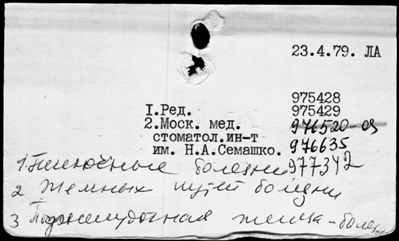 23.4.79. ЛА
975428
I.Ред. 975429
2.Моск. мед. 976520-09
стоматол.ин-т 976635
им. Н.А.Семашко. 977342
1 Печеночные болезни
2 Желчных путей болезни
3 Поджелудочная железа - болезн